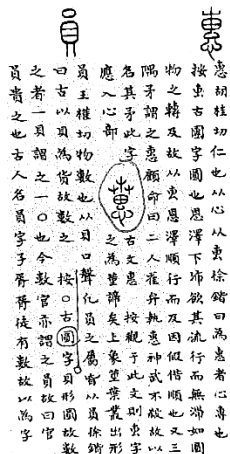 惠胡桂切仁也从心从叀徐鍇曰為惠者心專也
按叀古圜字圓也恩澤下沛欲其流行而無滯如圜
物之轉及故从叀恩澤順行而及因假借順也又三
隅矛謂之惠顧命曰二人雀弁執惠神武不殺故以
名其矛此字 古文惠 按觀于此文則叀字
應入心部 之為蕚諦矣上象蕚葉叢出形
員王權切物數也从貝口聲凡員之屬皆从員徐鍇
曰古以貝為貨故數之 按〇古圓字貝形圓故數
之者一貝謂之一〇也今數官亦謂之員故曰官
員 之也古人名員字子胥胥徒有數故以為字